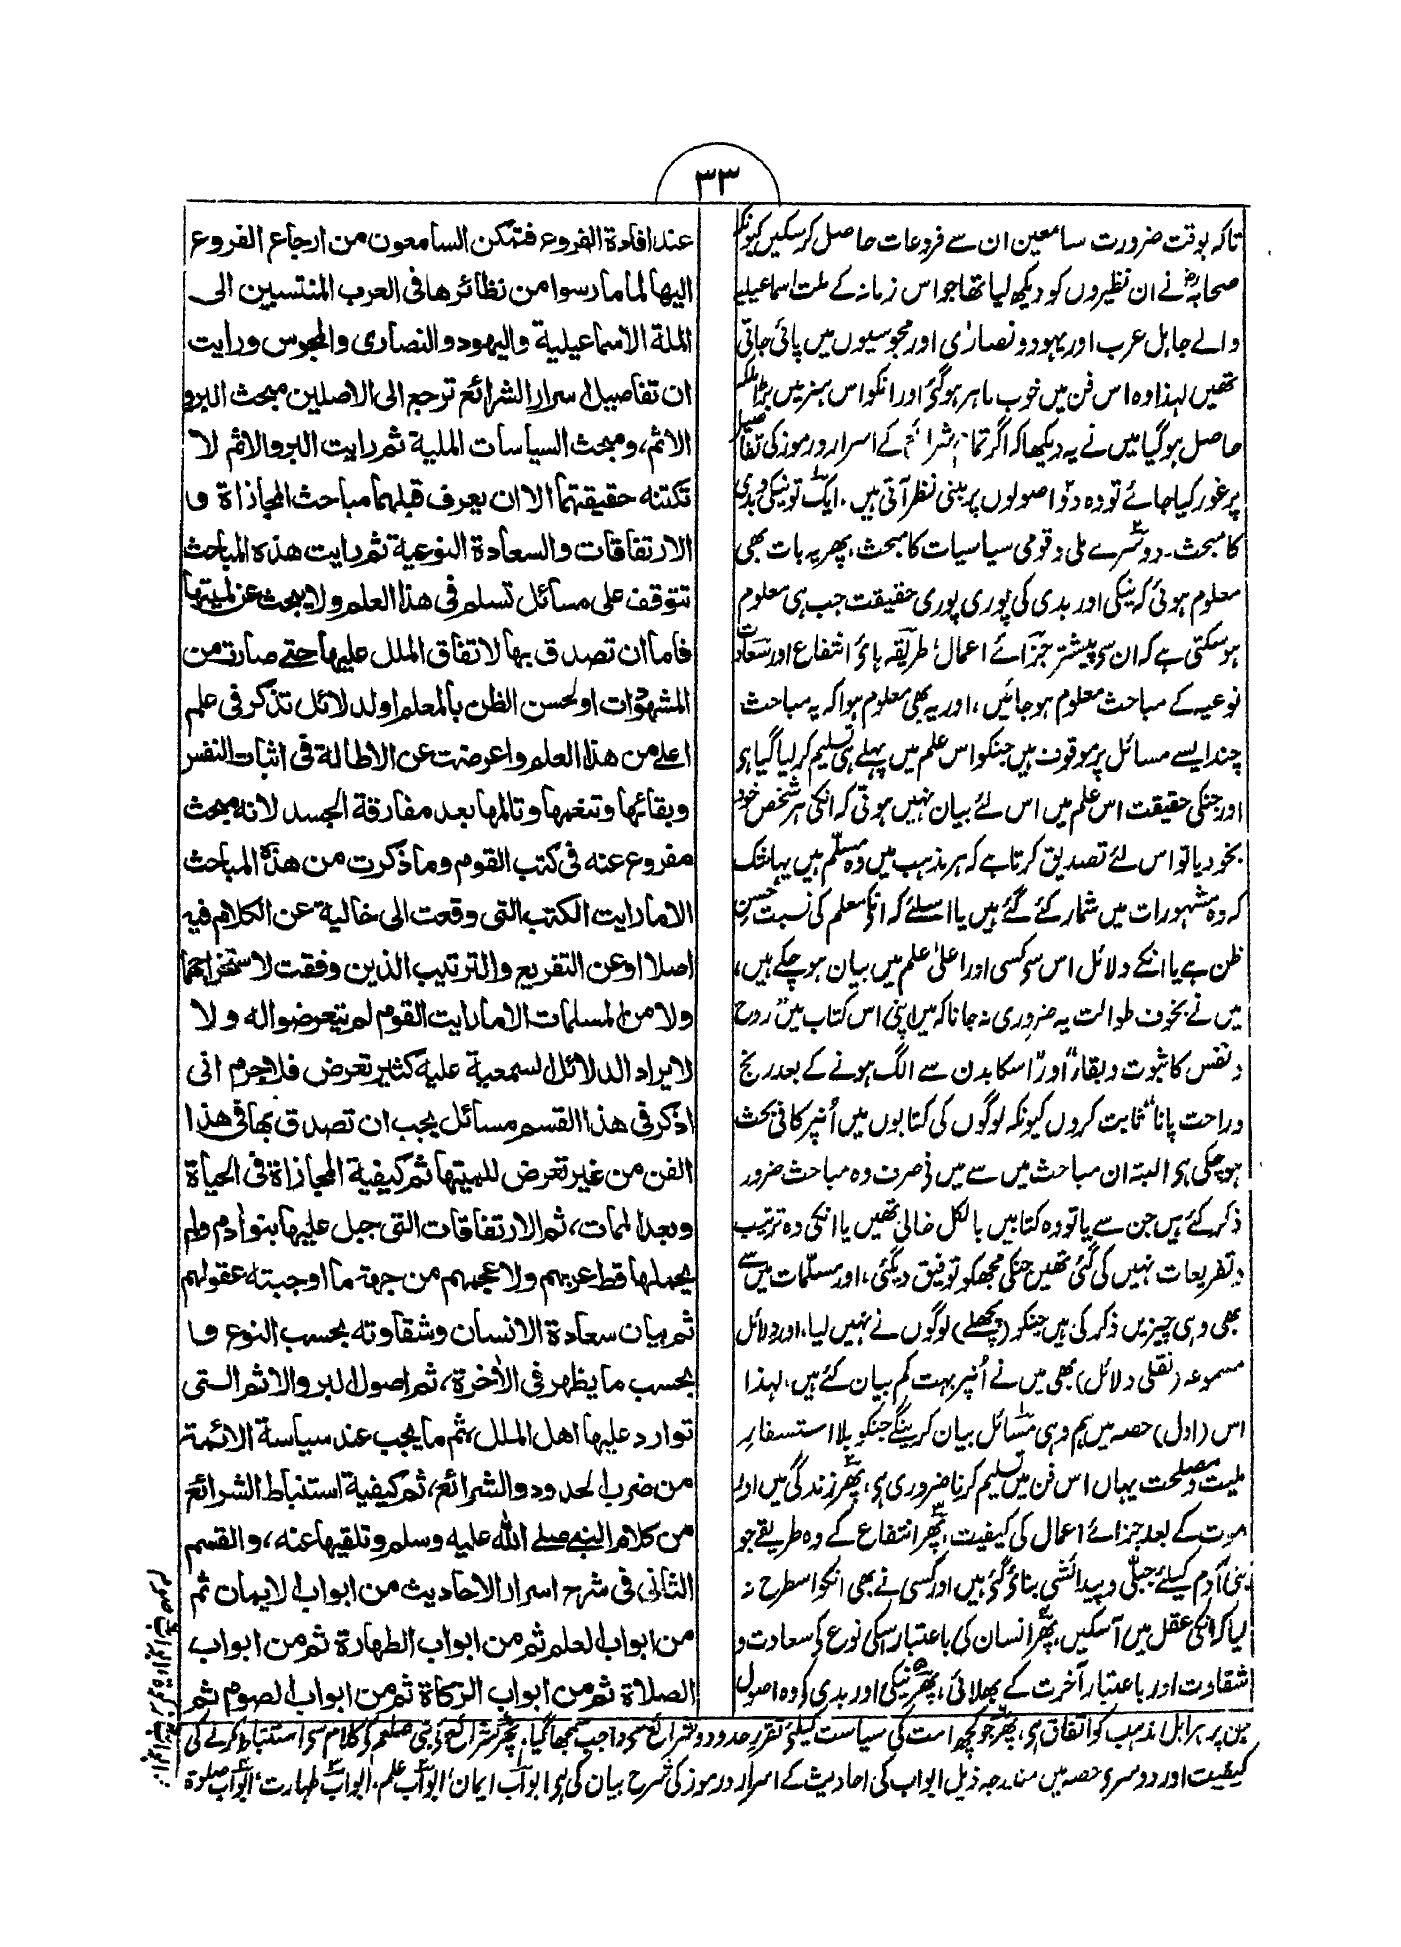 ۳۳
تاکہ بوقت ضرورت سامعین ان سے فروعات حاصل کر سکیں کیونکہ
صحابہؓ نے ان نظیروں کو دیکھ لیا تھا جو اس زمانہ کے ملت اسماعیلیہ
والے جاہل عرب اور یہود و نصارٰی اور مجوسیوں میں پائی جاتی
تھیں لہذا وہ اس فن میں خوب ماہر ہوگئے اور انکو اس ہنر میں بڑا ملکہ
حاصل ہوگیا میں نے یہ دیکھا کہ اگر تمام شرائع کے اسرار و رموز کی تفاصیل
پر غور کیا جائے تو وہ دو اصولوں پر مبنی نظر آتی ہیں، ایک تو نیکی و بدی
کا مبحث۔ دوسرے ملی و قومی سیاسیات کا مبحث، پھر یہ بات بھی
معلوم ہوئی کہ نیکی اور بدی کی پوری پوری حقیقت جب ہی معلوم
ہو سکتی ہے کہ ان سے پیشتر جزائے اعمال، طریقہ ہائے انتفاع اور سعادت
نوعیہ کے مباحث معلوم ہو جائیں، اور یہ بھی معلوم ہوا کہ یہ مباحث
چند ایسے مسائل پر موقوف ہیں جنکو اس علم میں پہلے ہی تسلیم کر لیا گیا ہو
اور جنکی حقیقت اس علم میں اس لئے بیان نہیں ہوتی کہ انکی ہر شخص خود
بخود یا تو اس لئے تصدیق کرتا ہے کہ ہر مذہب میں وہ مسلّم ہیں یہانتک
کہ وہ مشہورات میں شمار کئے گئے ہیں یا اسلئے کہ انکو معلم کی نسبت حسن
ظن ہے یا انکے دلائل اس سے کسی اور اعلیٰ علم میں بیان ہو چکے ہیں،
میں نے بخوف طوالت یہ ضروری نہ جانا کہ میں اپنی اس کتاب میں روح
و نفس کا ثبوت و بقاء اور اسکا بدن سے الگ ہونے کے بعد رنج
و راحت پانا ثابت کروں کیونکہ لوگوں کی کتابوں میں اُنپر کافی بحث
ہوچکی ہو البتہ ان مباحث میں سے میں نے صرف وہ مباحث ضرور
ذکر کئے ہیں جن سے یا تو وہ کتابیں بالکل خالی تھیں یا انکی وہ ترتیب
و تفریعات نہیں کی گئی تھیں جنکی مجھکو توفیق دیگئی، اور مسلّمات میں سے
بھی وہی چیزیں ذکر کی ہیں جنکو (پچھلے) لوگوں نے نہیں لیا، اور دلائل
مسموعہ (نقلی دلائل) بھی میں نے اُنپر بہت کم بیان کئے ہیں، لہذا
اس (اول) حصہ میں ہم وہی مسائل بیان کرینگے جنکو بلا استفسار
ملیت و مصلحت یہاں اس فن میں تسلیم کرنا ضروری ہو، پھر زندگی میں اور
موت کے بعد جزائے اعمال کی کیفیت، پھر انتفاع کے وہ طریقے جو
بنی آدم کیلئے جبلّی و پیدائشی بنائے گئے ہیں اور کسی نے بھی انکو اسطرح نہ
لیا کہ انکی عقل میں آسکیں، پھر انسان کی باعتبار اسکی نوع کی سعادت و
شقاوت اور باعتبار آخرت کے بھلائی، پھر نیکی اور بدی کے وہ اصول
عند افادة الفروع فتمكن السامعون من ارجاع الفروع
اليها لما مارسوا من نظائرها في العرب المنتسبين الى
الملة الاسماعيلية واليهود والنصارى والمجوس ورايت
ان تفاصيل اسرار الشرائع ترجع الى الاصلين مبحث البر و
الاثم، ومبحث السياسات الملية ثم رايت البر والاثم لا
تكتنه حقيقتهما الا ان يعرف قبلهما مباحث المجازاة و
الارتفاقات والسعادة النوعية ثم رايت هذه المباحث
تتوقف على مسائل تسلم في هذا العلم ولا يبحث عن لميتها
فاما ان تصدق بها لاتفاق الملل عليها حتى صارت من
المشهورات او لحسن الظن بالمعلم او لدلائل تذكر في علم
اعلى من هذا العلم واعرضت عن الاطالة في اثبات النفس
وبقائها وتنعمها وتالمها بعد مفارقة الجسد لانه مبحث
مفروع عنه في كتب القوم وما ذكرت من هذه المباحث
الا ما رايت الكتب التي وقعت الى خالية عن الكلام فيه
اصلا او عن التفريع والترتيب الذين وفقت لاستخراجهما
ولا من المسلمات الا ما رايت القوم لم يتعرضوا له ولا
لايراد الدلائل السمعية عليه كثير تعرض فلا جرم اني
اذكر في هذا القسم مسائل يجب ان تصدق بها في هذا
الفن من غير تعرض للميتها ثم كيفية المجازاة في الحياة
وبعد الممات، ثم الارتفاقات التي جبل عليها بنو ادم ولم
يهملها قط عربهم ولا عجمهم من جهة ما اوجبته عقولهم
ثم بيان سعادة الانسان وشقاوته بحسب النوع و
بحسب ما يظهر في الأخرة، ثم اصول البر والاثم التي
توارد عليها اهل الملل، ثم ما يجب عند سياسة الائمة
من ضرب الحدود والشرائع، ثم كيفية استنباط الشرائع
من كلام النبي صلى الله عليه وسلم وتلقيها عنه، والقسم
الثاني في شرح اسرار الاحاديث من ابواب الايمان ثم
من ابواب العلم ثم من ابواب الطهارة ثم من ابواب
الصلاة ثم من ابواب الزكاة ثم من ابواب الصوم ثم
جن پر ہر اہل مذہب کو اتفاق ہو، پھر جو کچھ امت کی سیاست کیلئے تقرر حدود و شرائع سے واجب سمجھا گیا، پھر شرائع کو نبی صلعم کے کلام سے استنباط کرنے کی
کیفیت اور دوسرے حصہ میں مندرجہ ذیل ابواب کی احادیث کے اسرار و رموز کی شرح بیان کی ہو ابواب ایمان، ابواب علم، ابواب طہارت، ابواب صلوة